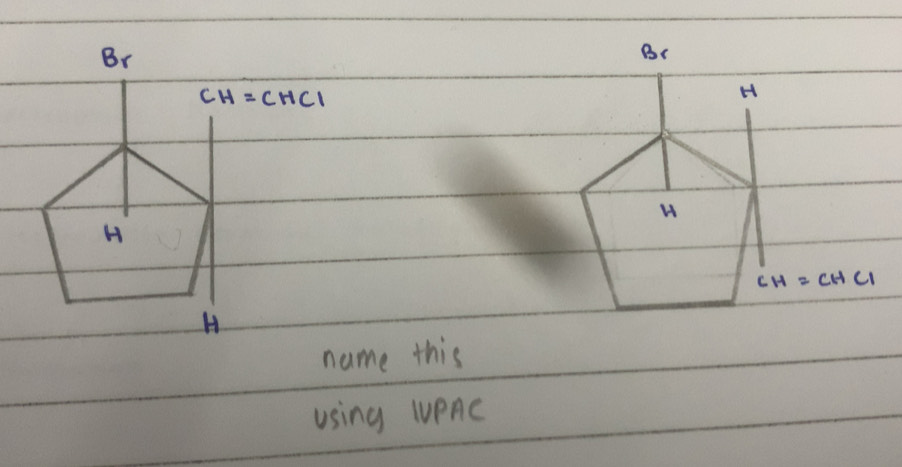 Br
CH = CHCl
H
H
Br
H
H
CH = CHCl
name this
using IUPAC